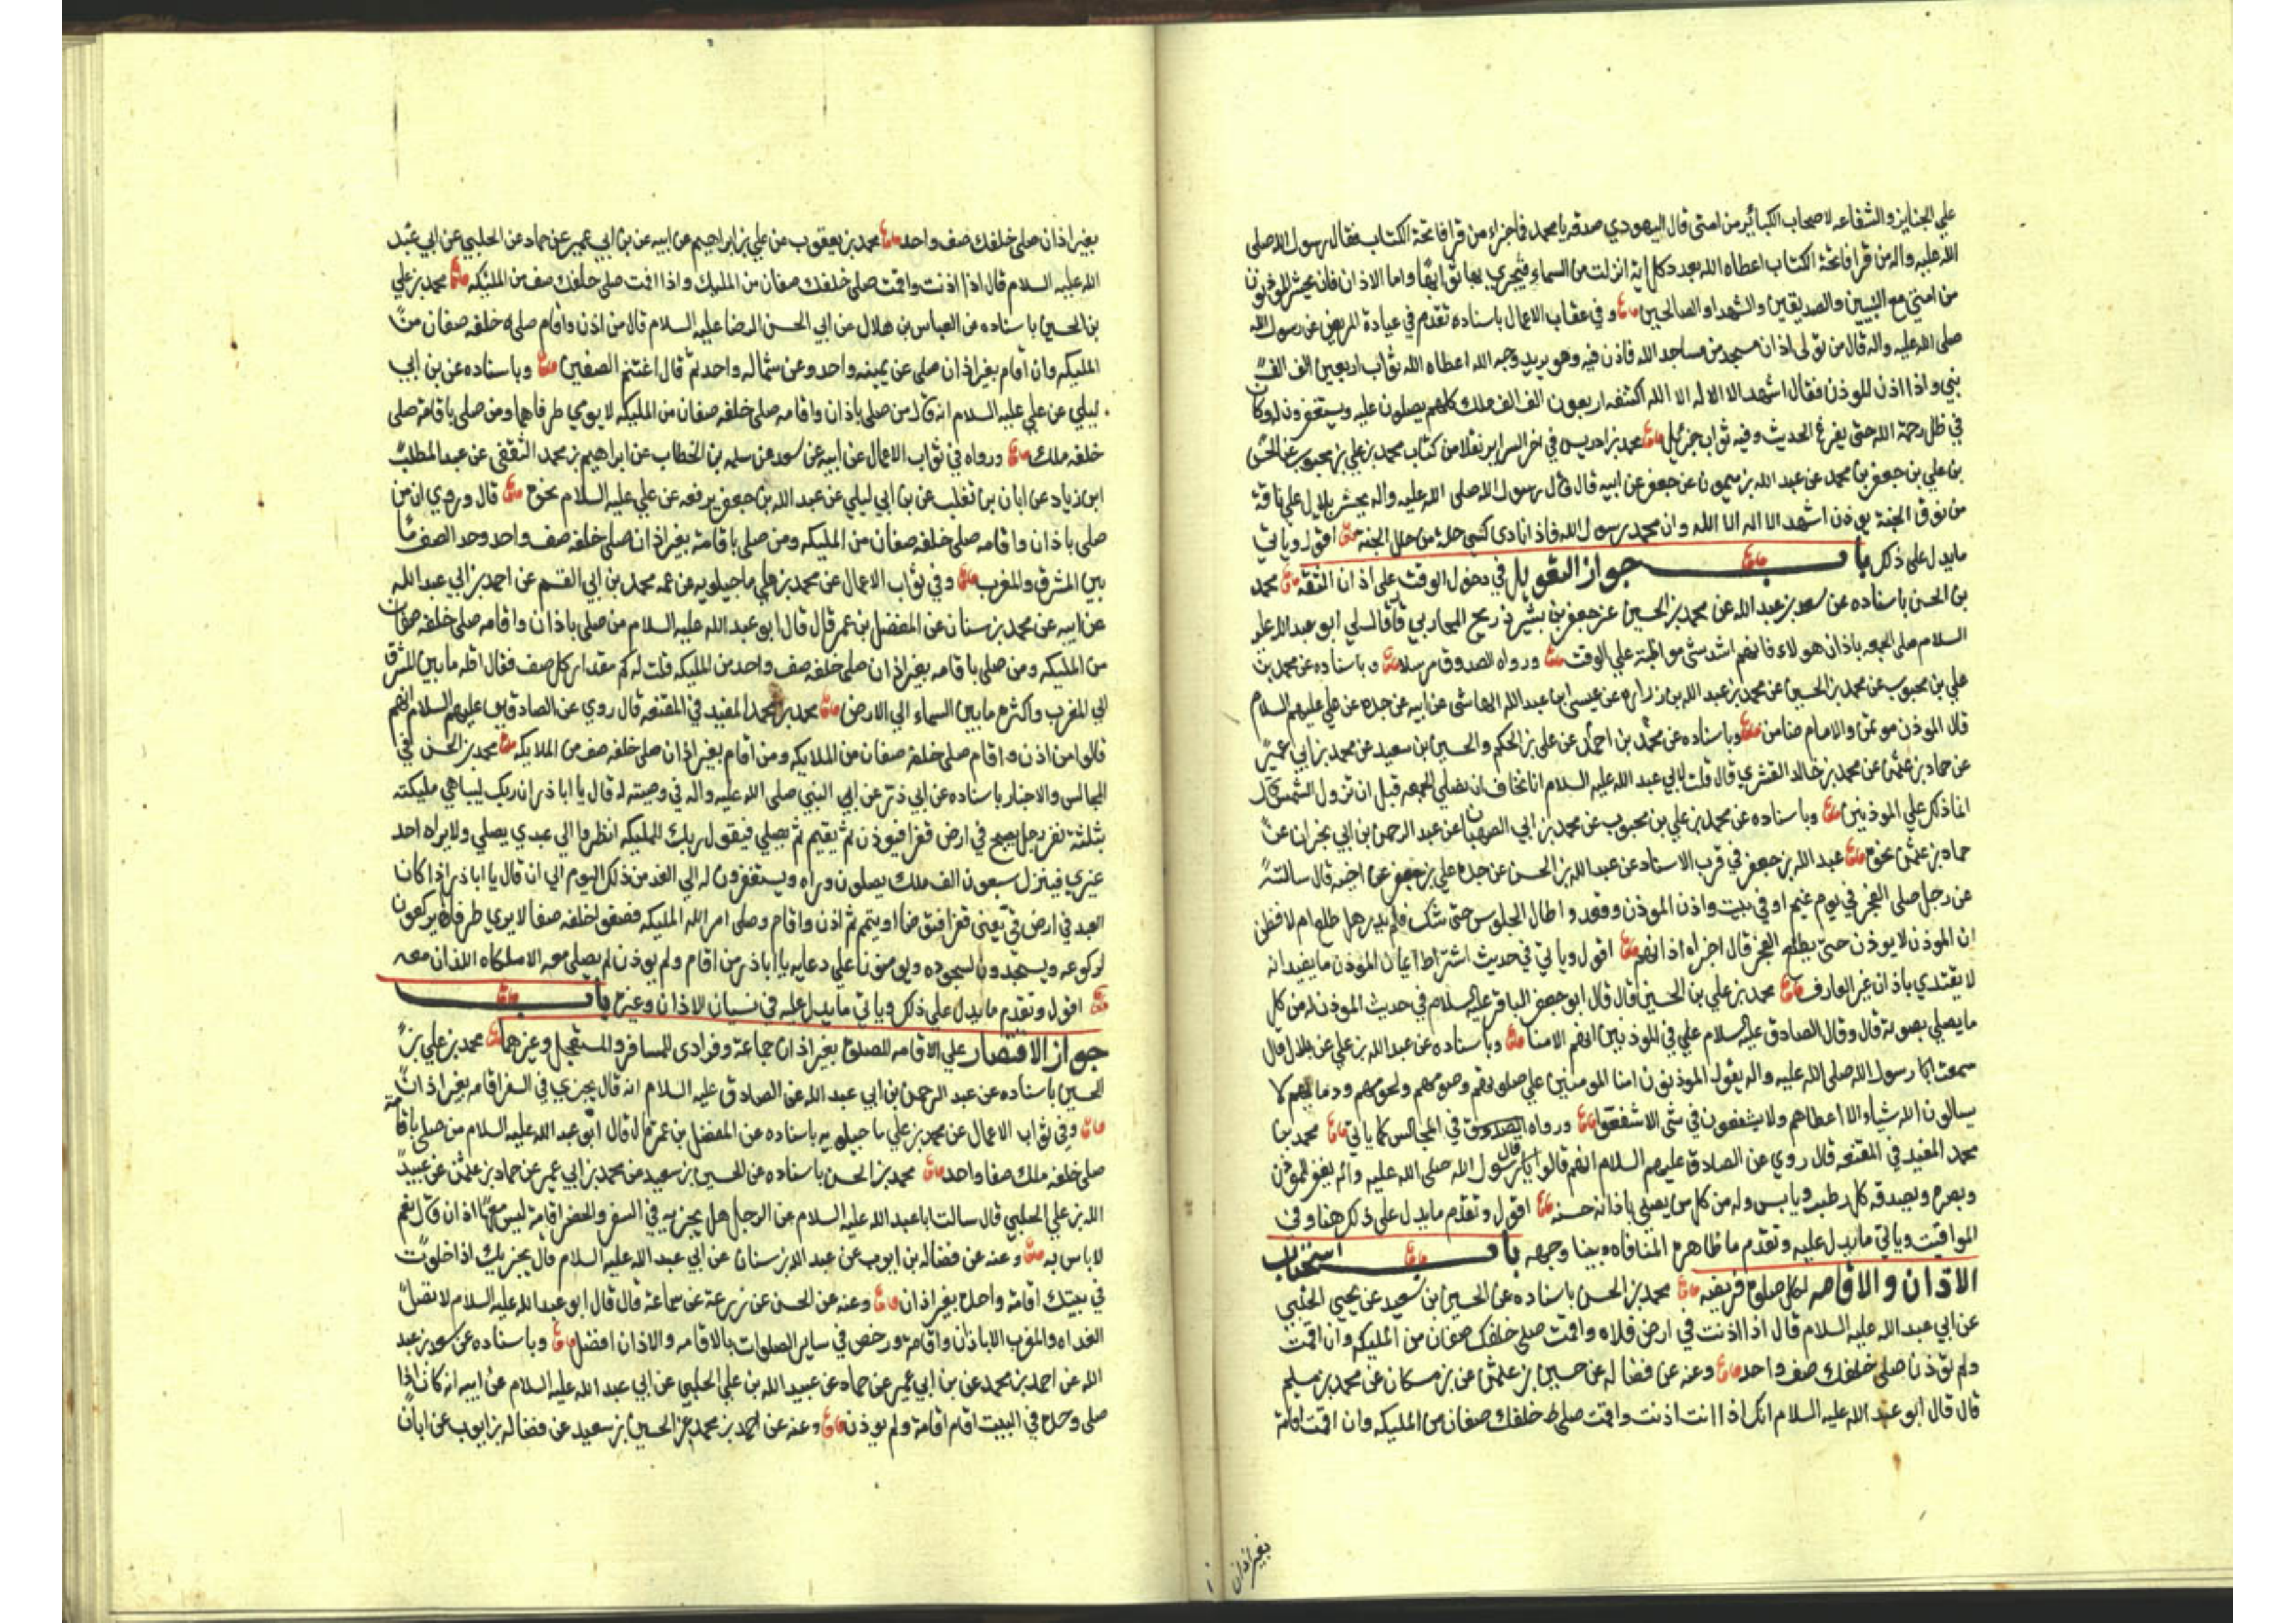 علي الجنايز والشفاعه لاصحاب الكبائر من امتي قال اليهودي صدقت يا محمد فما جزاء من قرا فاتحة الكتاب فقال رسول الله صلي
الله عليه واله من قرا فاتحة الكتاب اعطاه الله بعدد كل اية انزلت من السماء فيجزي بها ثوابها واما الاذان فانه يحشر المؤذنون
من امتي مع النبيين والصديقين والشهدا والصالحين وفي عقاب الاعمال باسناده تقدم في عيادة المريض عن رسول الله
صلي الله عليه واله قال من تولي اذان مسجد من مساجد الله فاذن فيه وهو يريد وجه الله اعطاه الله ثواب اربعين الف الف
نبي واذا اذن الموذن فقال اشهد ان لا اله الا الله اكتنفه اربعون الف الف ملك كلهم يصلون عليه ويستغفرون له وكان
في ظل رحمة الله حتي يفرغ الحديث وفيه ثواب جزيل محمد بن ادريس في اخر السراير نقلا من كتاب محمد بن علي بن محبوب عن الحسن
بن علي بن جعفر بن محمد عن عبد الله بن ميمون عن جعفر عن ابيه قال قال رسول الله صلي الله عليه واله يحشر بلال علي ناقة
من نوق الجنة يوذن اشهد ان لا اله الا الله وان محمد رسول الله فاذا نادي كسي حلة من حلل الجنة اقول وياتي
مايدل علي ذلك باب جواز التعويل في دخول الوقت علي اذان الثقة محمد
بن الحسن باسناده عن سعد بن عبد الله عن محمد بن الحسين عن جعفر بن بشير ذريح المحاربي قال قال لي ابو عبد الله عليه
السلام صلي الجمعه باذان هولاء فانهم اشد شي مواظبة علي الوقت ورواه الصدوق مرسلا وباسناده عن محمد بن
علي بن محبوب عن محمد بن الحسين عن محمد بن عبد الله بن زراره عن عيسي بن عبد الله الهاشمي عن ابيه عن جده عن علي عليهم السلام
قال الموذن موتمن والامام ضامن وباسناده عن محمد بن احمد عن علي بن الحكم والحسين بن سعيد عن محمد بن ابي عمير
عن حماد بن عثمن عن محمد بن خالد القسري قال قلت لابي عبد الله عليه السلام انا نخاف ان نصلي الجمعه قبل ان تزول الشمس قال
انما ذلك علي الموذنين وباسناده عن محمد بن علي بن محبوب عن محمد بن ابي الصهبان عن عبد الرحمن بن ابي نجران عن
حماد بن عثمن نحوه عبد الله بن جعفر في قرب الاسناد عن عبد الله بن الحسن عن جده علي بن جعفر عن اخيه قال سالته
عن رجل صلي الفجر في يوم غيم او في بيت واذن الموذن وقعد واطال الجلوس حتي شك فلم يدر هل طلع ام لا فظن
ان الموذن لا يوذن حتي يطلع الفجر قال اجزاه اذانهم اقول وياتي في حديث اشتراط ايمان الموذن مايفيد انه
لا يقتدي باذان غير العارف محمد بن علي بن الحسين قال قال ابو جعفر الباقر عليه السلام في حديث الموذن له من كل
مايصلي بصوته قال وقال الصادق عليه السلام علي في الموذنين انهم الامنا وباسناده عن عبد الله بن علي عن بلال قال
سمعت رسول الله صلي الله عليه واله يقول الموذنون امنا المومنين علي صلوتهم وصومهم ولحومهم ودمايهم لا
يسالون الله شياء الا اعطاهم ولا يشفعون في شي الا شفعوا ورواه الصدوق في المجالس كما ياتي محمد بن
محمد المفيد في المقنعه قال روي عن الصادق عليهم السلام انهم قالوا قال رسول الله صلي الله عليه واله يغفر للموذن
وبصره ويصدقه كل رطب ويابس وله من كل من يصلي باذانه حسنه اقول وتقدم مايدل علي ذلك هنا وفي
المواقيت وياتي مايدل عليه وتقدم ما ظاهره المنافاه وبينا وجهه باب استحباب
الاذان والاقامه لكل صلوة فريضه محمد بن الحسن باسناده عن الحسين بن سعيد عن يحيي الحلبي
عن ابي عبد الله عليه السلام قال اذا اذنت في ارض فلاه واقمت صلي خلفك صفان من المليكه وان اقمت
ولم توذن صلي خلفك صف واحد وعنه عن فضاله عن حسين بن عثمن عن بن مسكان عن محمد بن مسلم
قال قال ابو عبد الله عليه السلام انك اذا انت اذنت واقمت صلي خلفك صفان من المليكه وان اقمت اقامة
بغير اذان
بغير اذان صلي خلفك صف واحد محمد بن يعقوب عن علي بن ابراهيم عن ابيه عن بن ابي عمير عن حماد عن الحلبي عن ابي عبد
الله عليه السلام قال اذا اذنت واقمت صلي خلفك صفان من المليك واذا اقمت صلي خلفك صف من المليكه محمد بن علي
بن الحسين باسناده عن العباس بن هلال عن ابي الحسن الرضا عليه السلام قال من اذن واقام صلي خلفه صفان من
المليكه وان اقام بغير اذان صلي عن يمينه واحد وعن شماله واحد ثم قال اغتنم الصفين وباسناده عن بن ابي
ليلي عن علي عليه السلام انه قال من صلي باذان واقامه صلي خلفه صفان من المليكه لا يري طرفاهما ومن صلي باقامة صلي
خلفه ملك ورواه في ثواب الاعمال عن ابيه عن سعد عن سلمه بن الخطاب عن ابراهيم بن محمد الثقفي عن عبد المطلب
ابن زياد عن ابان بن تغلب عن بن ابي ليلي عن عبد الله بن جعفر يرفعه عن علي عليه السلام نحوه قال وروي ان من
صلي باذان واقامه صلي خلفه صفان من المليكه ومن صلي باقامة بغير اذان صلي خلفه صف واحد وحد الصف ما
بين المشرق والمغرب وفي ثواب الاعمال عن محمد بن علي ماجيلويه عن عمه محمد بن ابي القسم عن احمد بن ابي عبد الله
عن ابيه عن محمد بن سنان عن المفضل بن عمر قال قال ابو عبد الله عليه السلام من صلي باذان واقامه صلي خلفه صفان
من المليكه ومن صلي باقامه بغير اذان صلي خلفه صف واحد من المليكه قلت له كم مقدار كل صف فقال اقله مابين المشرق
الي المغرب واكثره مابين السماء الي الارض محمد بن محمد المفيد في المقنعه قال روي عن الصادقين عليهم السلام انهم
قالوا من اذن واقام صلي خلفه صفان من الملايكه ومن اقام بغير اذان صلي خلفه صف من الملايكه محمد بن الحسن في
المجالس والاخبار باسناده عن ابي ذر عن النبي صلي الله عليه واله في وصيته له قال يا ابا ذر ان ربك ليباهي مليكته
بثلثة نفر رجل يصبح في ارض قفر فيوذن ثم يقيم ثم يصلي فيقول ربك للمليكه انظروا الي عبدي يصلي ولا يراه احد
غيري فينزل سبعون الف ملك يصلون وراه ويستغفرون له الي الغد من ذلك اليوم الي ان قال يا ابا ذر اذا كان
العبد في ارض قي يعني قفر فتوضا او يتمم ثم اذن واقام وصلي امر الله المليكه فصفوا خلفه صفا لا يري طرفاه يركعون
لركوعه ويسجدون لسجوده ويومنون علي دعايه يا ابا ذر من اقام ولم يوذن لم يصلي معه الا ملكاه اللذان معه
اقول وتقدم مايدل علي ذلك وياتي مايدل عليه في نسيان الاذان وغيره باب
جواز الاقتصار علي الاقامه للصلوة بغير اذان جماعة وفرادي للمسافر والمستعجل وغيرهما محمد بن علي بن
الحسين باسناده عن عبد الرحمن بن ابي عبد الله عن الصادق عليه السلام انه قال يجزي في السفر اقامه بغير اذان
وفي ثواب الاعمال عن محمد بن علي ماجيلويه باسناده عن المفضل بن عمر قال قال ابو عبد الله عليه السلام من صلي باقامة
صلي خلفه ملك صفا واحد محمد بن الحسن باسناده عن الحسين بن سعيد عن محمد بن ابي عمير عن حماد بن عثمن عن عبيد
الله بن علي الحلبي قال سالت ابا عبد الله عليه السلام عن الرجل هل يجزيه في السفر والحضر اقامة ليس معها اذان قال نعم
لا باس به وعنه عن فضاله بن ايوب عن عبد الله بن سنان عن ابي عبد الله عليه السلام قال يجزيك اذا خلوت
في بيتك اقامة واحده بغير اذان وعنه عن الحسن عن زرعة عن سماعة قال قال ابو عبد الله عليه السلام لا تصل
الغداه والمغرب الا باذان واقامة ورخص في ساير الصلوات بالاقامه والاذان افضل وباسناده عن سعد بن عبد
الله عن احمد بن محمد عن بن ابي عمير عن حماد عن عبيد الله بن علي الحلبي عن ابي عبد الله عليه السلام عن ابيه انه كان اذا
صلي وحده في البيت اقام اقامة ولم يوذن وعنه عن احمد بن محمد عن الحسين بن سعيد عن فضاله بن ايوب عن ابان